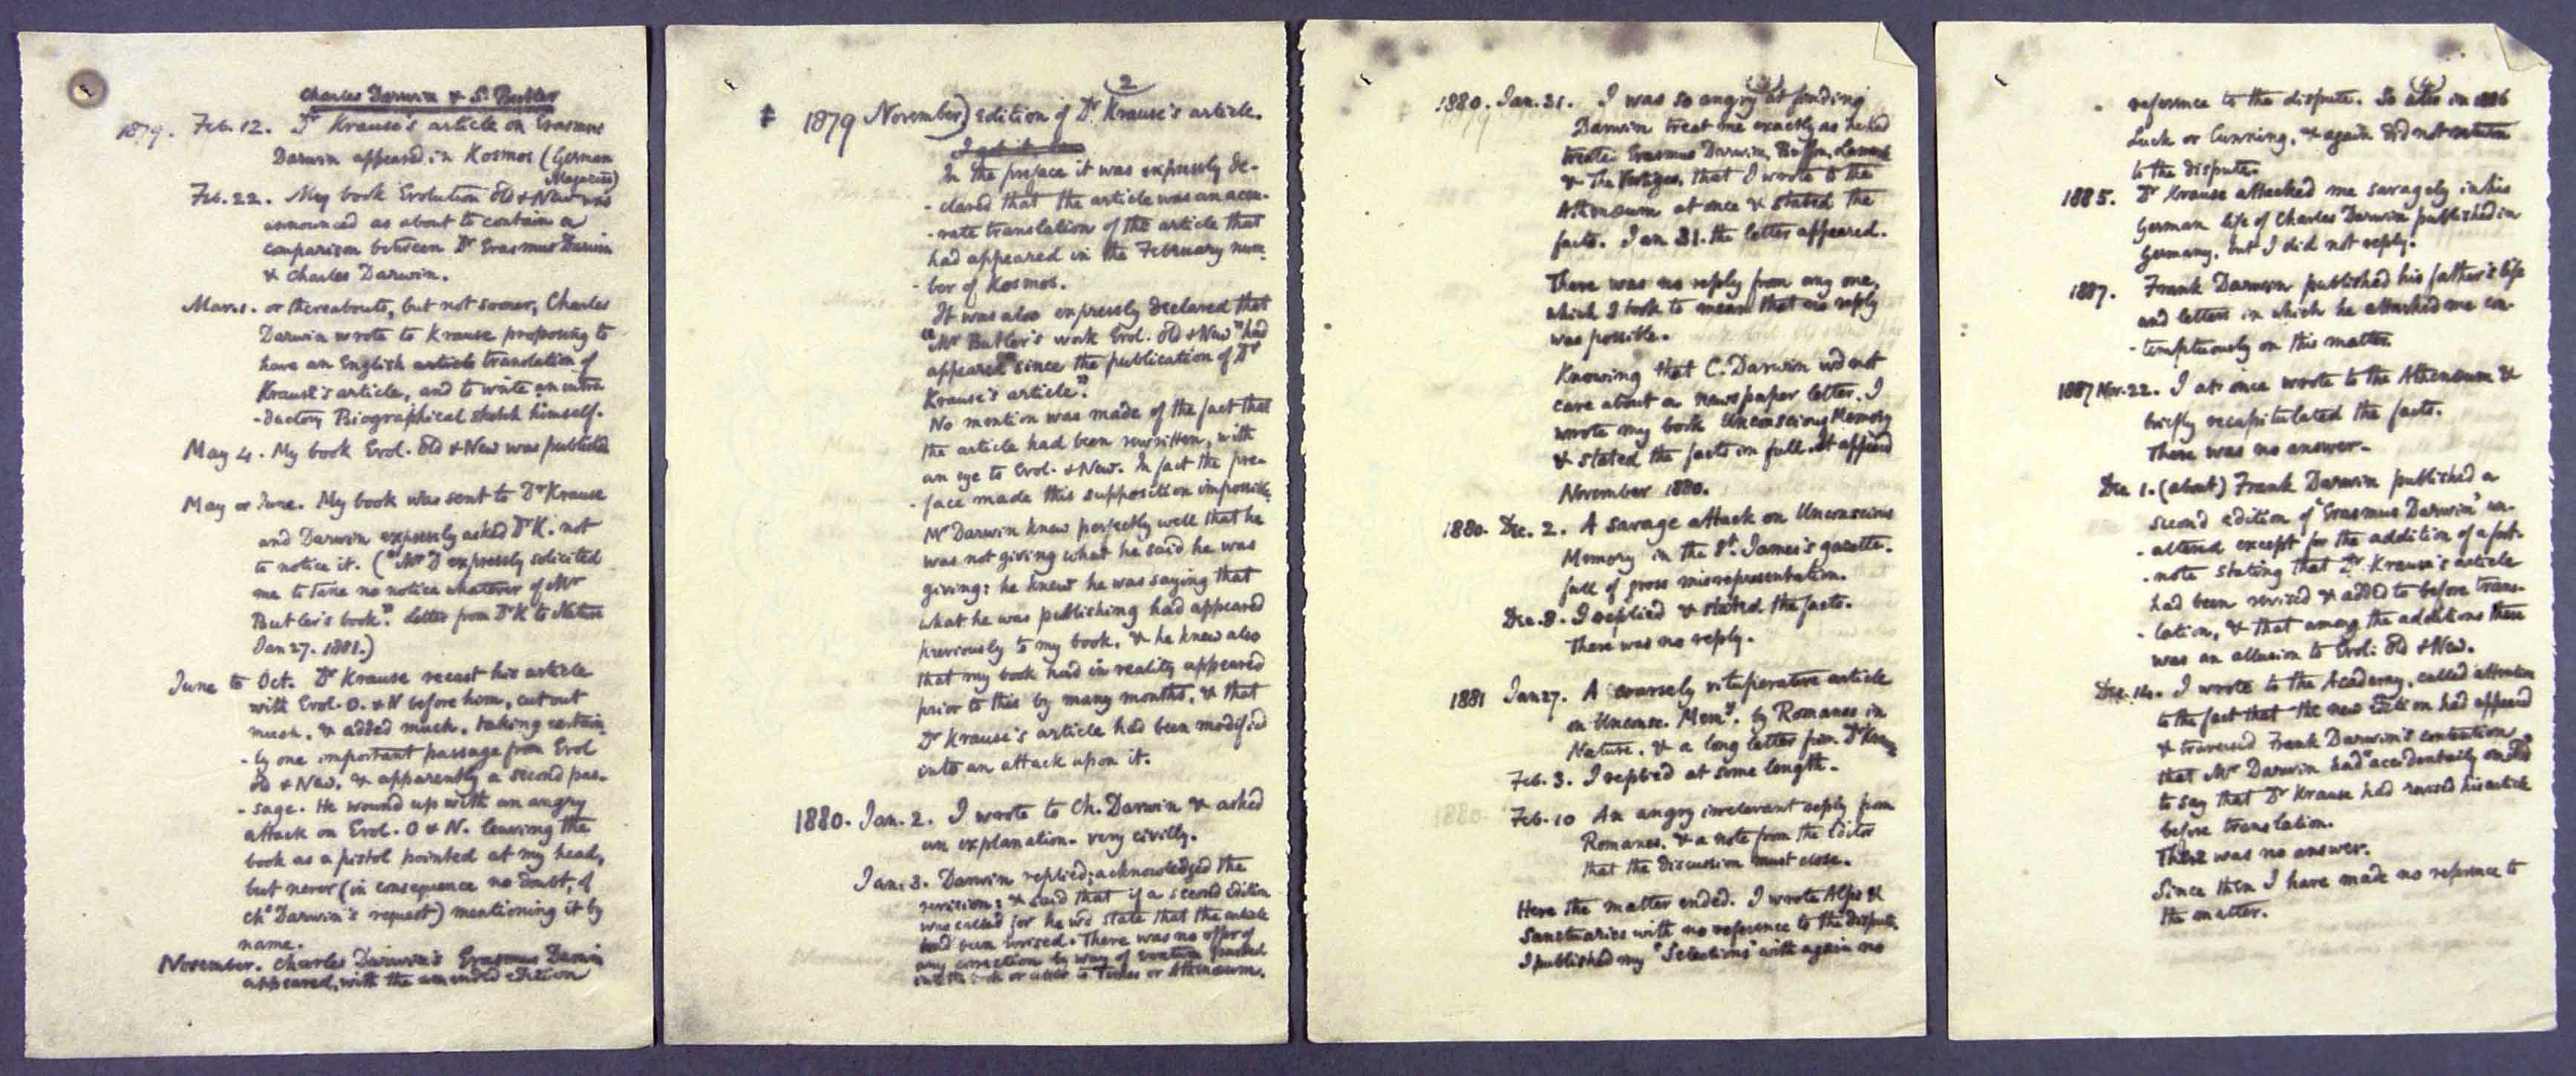 Charles Darwin & S. Butler
1879. Feb. 12. Dr Krause's article on Erasmus
Darwin appeared in Kosmos (German
Magazine)
Feb. 22. My book Evolution Old & New was
announced as about to contain a
comparison between Dr Erasmus Darwin
& Charles Darwin.
Mar. 1. or thereabouts, but not sooner, Charles
Darwin wrote to Krause proposing to
have an English article translation of
Krause's article, and to write an intro
-ductory Biographical sketch himself.
May 4. My book Evol. Old & New was published
May or June. My book was sent to Dr Krause
and Darwin expressly asked Dr K. not
to notice it. ("Mr D expressly solicited
me to take no notice whatever of Mr
Butler's book". Letter from Dr K to Nature
Jan 27. 1881.)
June to Oct. Dr Krause recast his article
with Evol. O. & N before him, cut out
much, & added much, taking certain
-ly one important passage from Evol
Old & New, & apparently a second pas-
-sage. He wound up with an angry
attack on Evol. O & N. leaving the
book as a pistol pointed at my head,
but never (in consequence no doubt, of
Chs Darwin's request) mentioning it by
name.
November. Charles Darwin's Erasmus Darwin
appeared, with the amended edition
2
1879 November) Edition of Dr Krause's article.
In the preface it was expressly de-
-clared that the article was an accu-
-rate translation of the article that
had appeared in the February num-
-ber of Kosmos.
It was also expressly declared that
"Mr Butler's work Evol. Old & New" had
appeared "since the publication of Dr
Krause's article".
No mention was made of the fact that
the article had been rewritten, with
an eye to Evol. & New. In fact the pre-
-face made this supposition impossible.
Mr Darwin knew perfectly well that he
was not giving what he said he was
giving: he knew he was saying that
what he was publishing had appeared
previously to my book, & he knew also
that my book had in reality appeared
prior to this by many months, & that
Dr Krause's article had been modified
into an attack upon it.
1880. Jan. 2. I wrote to Ch. Darwin & asked
an explanation. very civilly.
Jan. 3. Darwin replied; acknowledged the
revision; & said that if a second edition
was called for he wd state that the article
had been revised. There was no offer of
any correction by way of erratum
or letter to Times or Athenæum.
(3)
1880. Jan. 31. I was so angry at finding
Darwin treat me exactly as he had
treated Erasmus Darwin, Buffon, Lamarck
& The Vestiges, that I wrote to the
Athenæum at once & stated the
facts. Jan 31. the letter appeared.
There was no reply from any one,
which I took to mean that no reply
was possible.
Knowing that C. Darwin wd not
care about a newspaper letter, I
wrote my book Unconscious Memory
& stated the facts in full. It appeared
November 1880.
1880. Dec. 2. A savage attack on Unconscious
Memory in the St. James's gazette.
full of gross misrepresentation.
Dec. 8. I replied & stated the facts.
There was no reply.
1881 Jan 27. A coarsely vituperative article
on Unconsc. Memy. by Romanes in
Nature, & a long letter from Dr Krause
Feb. 3. I replied at some length.
Feb. 10 An angry irrelevant reply from
Romanes, & a note from the Editor
that the discussion must close.
Here the matter ended. I wrote Alps &
Sanctuaries with no reference to the dispute.
I published my "Selections" with again no
(4)
reference to the dispute. So also in 1886
Luck or Cunning, & again did not return
to the dispute.
1885. Dr Krause attacked me savagely in his
German life of Charles Darwin published in
Germany, but I did not reply.
1887. Frank Darwin published his father's life
and letters in which he attacked me con-
-temptuously on this matter
1887 Nov. 22. I at once wrote to the Athenæum &
briefly recapitulated the facts.
There was no answer.
Dec 1. (about) Frank Darwin published a
second edition of "Erasmus Darwin" un-
-altered except for the addition of a foot-
-note stating that Dr. Krause's article
had been revised & added to before trans-
-lation, & that among the additions there
was an allusion to Evol: Old & New.
Dec. 14. I wrote to the Academy, called attention
to the fact that the new Edition had appeared
& traversed Frank Darwin's contention
that Mr Darwin had "accidentally omitted
to say that Dr Krause had revised his article
before translation.
There was no answer.
Since then I have made no reference to
the matter.